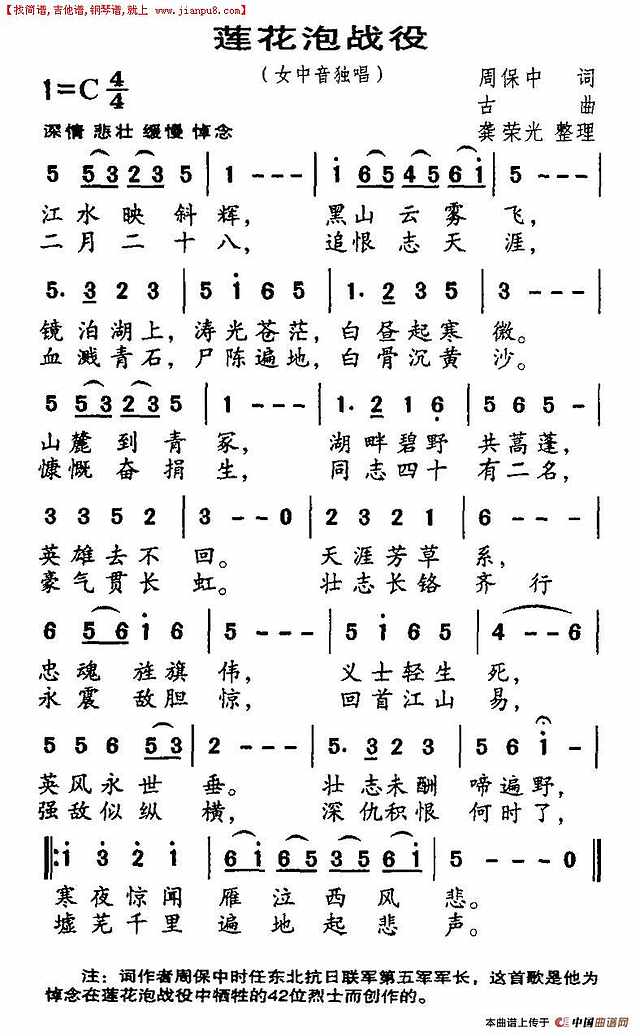 【找简谱,吉他谱,钢琴谱,就上 www.jianpu8.com】
莲花泡战役
（女中音独唱）
1=C 4/4
周保中 词
古 曲
龚荣光 整理
深情 悲壮 缓慢 悼念
5 53 23 5 | 1 - - - | 1 65 45 61 | 5 - - - |
江水映斜辉， 黑山云雾飞，
二月二十八， 追恨志天涯，
5. 3 2 3 | 5 1 6 5 | 1. 2 6 5 | 3 - - - |
镜泊湖上，涛光苍茫，白昼起寒微。
血溅青石，尸陈遍地，白骨沉黄沙。
5 53 23 5 | 1 - - - | 1. 2 1 6 | 5 6 5 - |
山麓到青冢， 湖畔碧野共蒿蓬，
慷慨奋捐生， 同志四十有二名，
3 3 5 2 | 3 - - 0 | 2 3 2 1 | 6 - - - |
英雄去不回。 天涯芳草系，
豪气贯长虹。 壮志长铬齐行
6 56 1 6 | 5 - - - | 5 1 6 5 | 4 - - 6 |
忠魂旌旗伟， 义士轻生死，
永震敌胆惊， 回首江山易，
5 5 6 53 | 2 - - - | 5. 3 2 3 | 5 6 1 - |
英风永世垂。 壮志未酬啼遍野，
强敌似纵横， 深仇积恨何时了，
‖: 1 3 2 1 | 61 65 35 61 | 5 - - 0 :‖
寒夜惊闻雁泣西风悲。
墟芜千里遍地起悲声。
注：词作者周保中时任东北抗日联军第五军军长，这首歌是他为
悼念在莲花泡战役中牺牲的42位烈士而创作的。
本曲谱上传于 中国曲谱网